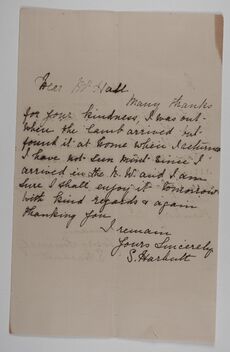 Dear Mr Hall
Many thanks
for your kindness, I was out
when the Lamb arrived but
found it at home when I returned
I have not seen mint since I
arrived in the N. W. and I am
sure I shall enjoy it tomorrow
with kind regards & again
thanking you
I remain
Yours Sincerely
S. Harbutt